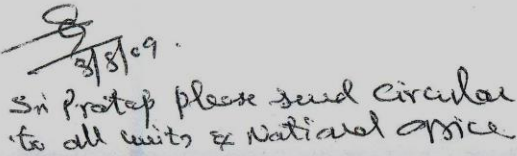 3/8/09.
Sri Pratap please send circular
to all units & National office